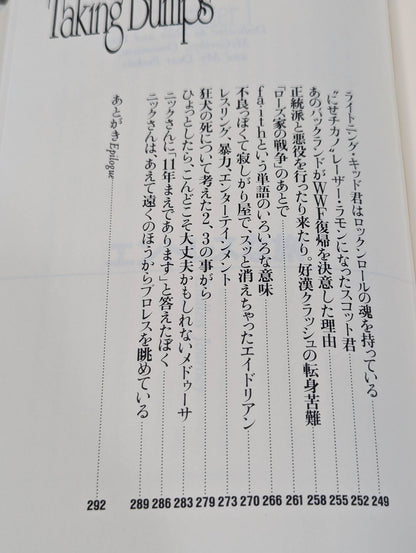 Taking Bumps
ライトニング・キッド君はロックンロールの魂を持っている 249
"にせチカノ"レーザー・ラモンになったスコット君 252
あのバックランドがWWF復帰を決意した理由 255
正統派と悪役を行ったり来たり。好漢クラッシュの転身苦難 258
「ローズ家の戦争」のあとで 261
faithという単語のいろいろな意味 266
不良っぽくて寂しがり屋で、スッと消えちゃったエイドリアン 270
レスリング、暴力、エンターテインメント 273
狂犬の死について考えた2、3の事がら 279
ひょっとしたら、こんどこそ大丈夫かもしれないメドゥーサ 283
ニックさんに「11年まえであります」と答えたぼく 286
ニックさんは、あえて遠くのほうからプロレスを眺めている 289
あとがき Epilogue 292